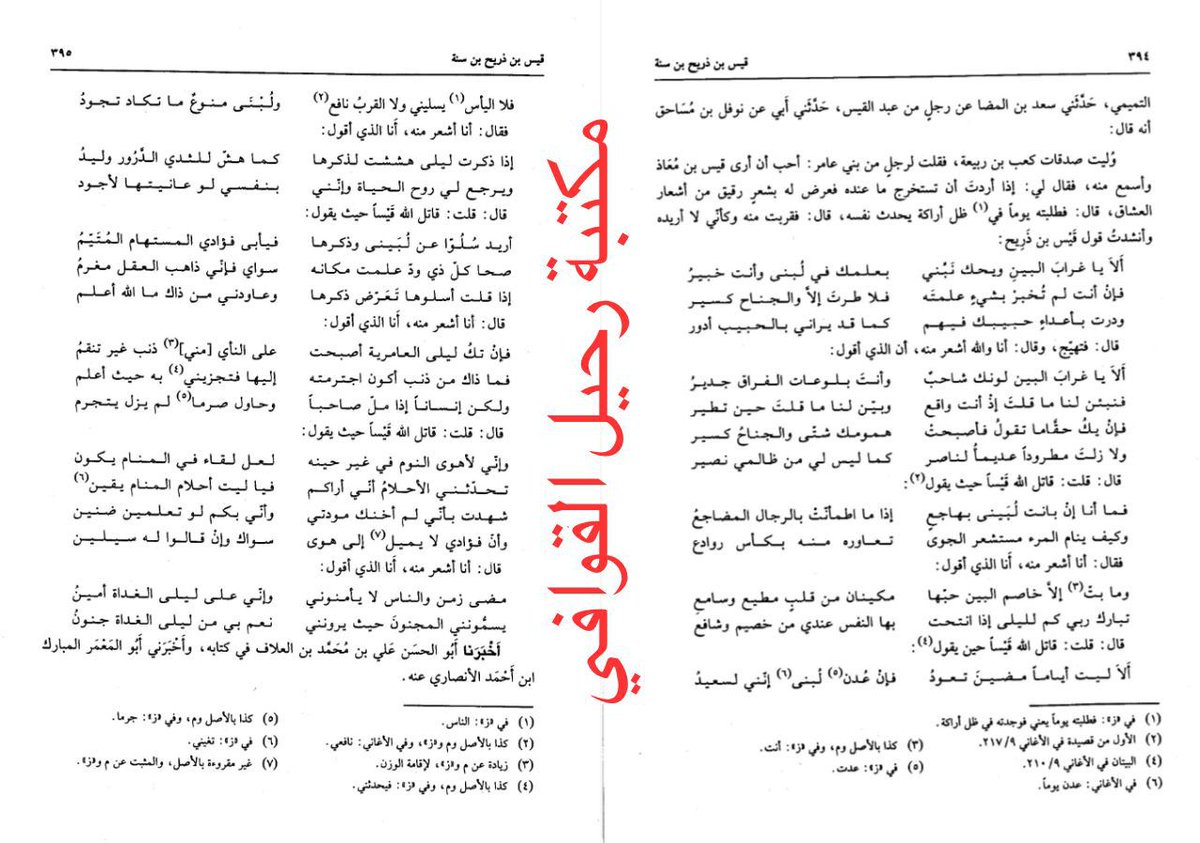 ٣٩٤
قيس بن ذريح بن سنة
التميمي، حَدَّثَني سعد بن المضا عن رجلٍ من عبد القيس، حَدَّثَني أبي عن نوفل بن مُسَاحق
أنه قال:
وُليت صدقات كعب بن ربيعة، فقلت لرجلٍ من بني عامر: أحب أن أرى قيس بن مُعَاذ
وأسمع منه، فقال لي: إذا أردتَ أن تستخرج ما عنده فعرض له بشعرٍ رقيق من أشعار
العشاق، قال: فطلبته يوماً في(١) ظل أراكة يحدث نفسه، قال: فقربت منه وكأنّي لا أريده
وأنشدتُ قول قَيْس بن ذَرِيح:
أَلاَ يا غرابَ البينِ ويحك نَبِّني بعلمك في لُبنى وأنت خبيرُ
فإنْ أنت لم تُخبرْ بشيءٍ علمتَه فلا طرتَ إلاَّ والجناح كسير
ودرت بأعداءٍ حبيبك فيهم كما قد يراني بالحبيب أدور
قال: فتهيّج، وقال: أنا والله أشعر منه، أن الذي أقول:
أَلاَ يا غرابَ البين لونك شاحبٌ وأنتَ بلوعات الفراق جديرُ
فنبئن لنا ما قلتَ إذْ أنت واقع وبيّن لنا ما قلتَ حين تطير
فإنْ يكُ حقّاما تقولُ فأصبحتْ همومك شتّى والجناحُ كسير
ولا زلتَ مطروداً عديماً لناصر كما ليس لي من ظالمي نصير
قال: قلت: قاتل الله قَيْساً حيث يقول(٢):
فما أنا إنْ بانت لُبَينى بهاجع إذا ما اطمأنّتْ بالرجال المضاجعُ
وكيف ينام المرء مستشعر الجوى تعاوره منه بكأس روادع
فقال: أنا أشعر منه، أنا الذي أقول:
وما بتّ(٣) إلاَّ خاصم البين حبّها مكينان من قلبٍ مطيع وسامعِ
تبارك ربي كم لليلى إذا انتحت بها النفس عندي من خصيم وشافع
قال: قلت: قاتل الله قَيْساً حين يقول(٤):
أَلاَ ليت أياماً مضينَ تعودُ فإنْ عُدن(٥) لُبنى(٦) إنّني لسعيدُ
(١) في «ز»: فطلبته يوماً يعني فوجدته في ظل أراكة.
(٢) الأول من قصيدة في الأغاني ٩/٢١٧.
(٣) كذا بالأصل وم، وفي «ز»: أنت.
(٤) البيتان في الأغاني ٩/٢١٠.
(٥) في «ز»: عدت.
(٦) في الأغاني: عدن يوماً.
مكتبة رحيل القوافي
قيس بن ذريح بن سنة
٣٩٥
فلا اليأس(١) يسليني ولا القربُ نافع(٢) ولُبْنَى منوعٌ ما تكاد تجودُ
فقال: أنا أشعر منه، أَنا الذي أقول:
إذا ذكرت ليلى هششت لذكرها كما هشّ للثدي الدَّرُور وليدُ
ويرجع لي روح الحياة وإنّني بنفسي لو عانيتها لأجود
قال: قلت: قاتل الله قَيْساً حيث يقول:
أريد سُلُوّا عن لُبَينى وذكرها فيأبى فؤادي المستهام المُتَيّمُ
صحا كلّ ذي ودّ علمت مكانه سواي فإنّي ذاهب العقل مغرمُ
إذا قلت أسلوها تَعَرّض ذكرها وعاودني من ذاك ما الله أعلم
قال: أنا أشعر منه، أنا الذي أقول:
فإنْ تكُ ليلى العامرية أصبحت على النأي [مني](٣) ذنب غير تنقمُ
فما ذاك من ذنب أكون اجترمته إليها فتجزيني(٤) به حيث أعلم
ولكن إنساناً إذا ملّ صاحباً وحاول صرما(٥) لم يزل يتجرم
قال: قلت: قاتل الله قَيْساً حيث يقول:
وإنّي لأهوى النوم في غير حينه لعل لقاء في المنام يكون
تحدّثني الأحلامُ أنّي أراكم فيا ليت أحلام المنام يقين(٦)
شهدت بأنّي لم أخنك مودتي وأنّي بكم لو تعلمين ضنين
وأنّ فؤادي لا يميل(٧) إلى هوى سواك وإنْ قالوا له سيلين
قال: أنا أشعر منه، أنا الذي أقول:
مضى زمن والناس لا يأمنوني وإنّي على ليلى الغداة أمينُ
يسمُّونني المجنونَ حيث يرونني نعم بي من ليلى الغداة جنونُ
أَخْبَرَنا أَبُو الحسَن عَلي بن مُحَمَّد بن العلاف في كتابه، وأَخْبَرَني أَبُو المَعْمَر المبارك
ابن أَحْمَد الأنصاري عنه.
(١) في «ز»: الناس.
(٢) كذا بالأصل وم و«ز»، وفي الأغاني: نافعي.
(٣) زيادة عن م و«ز»، لإقامة الوزن.
(٤) كذا بالأصل وم، وفي «ز»: فيحدثني.
(٥) كذا بالأصل وم، وفي «ز»: جرما.
(٦) في «ز»: تغيني.
(٧) غير مقروءة بالأصل، والمثبت عن م و«ز».